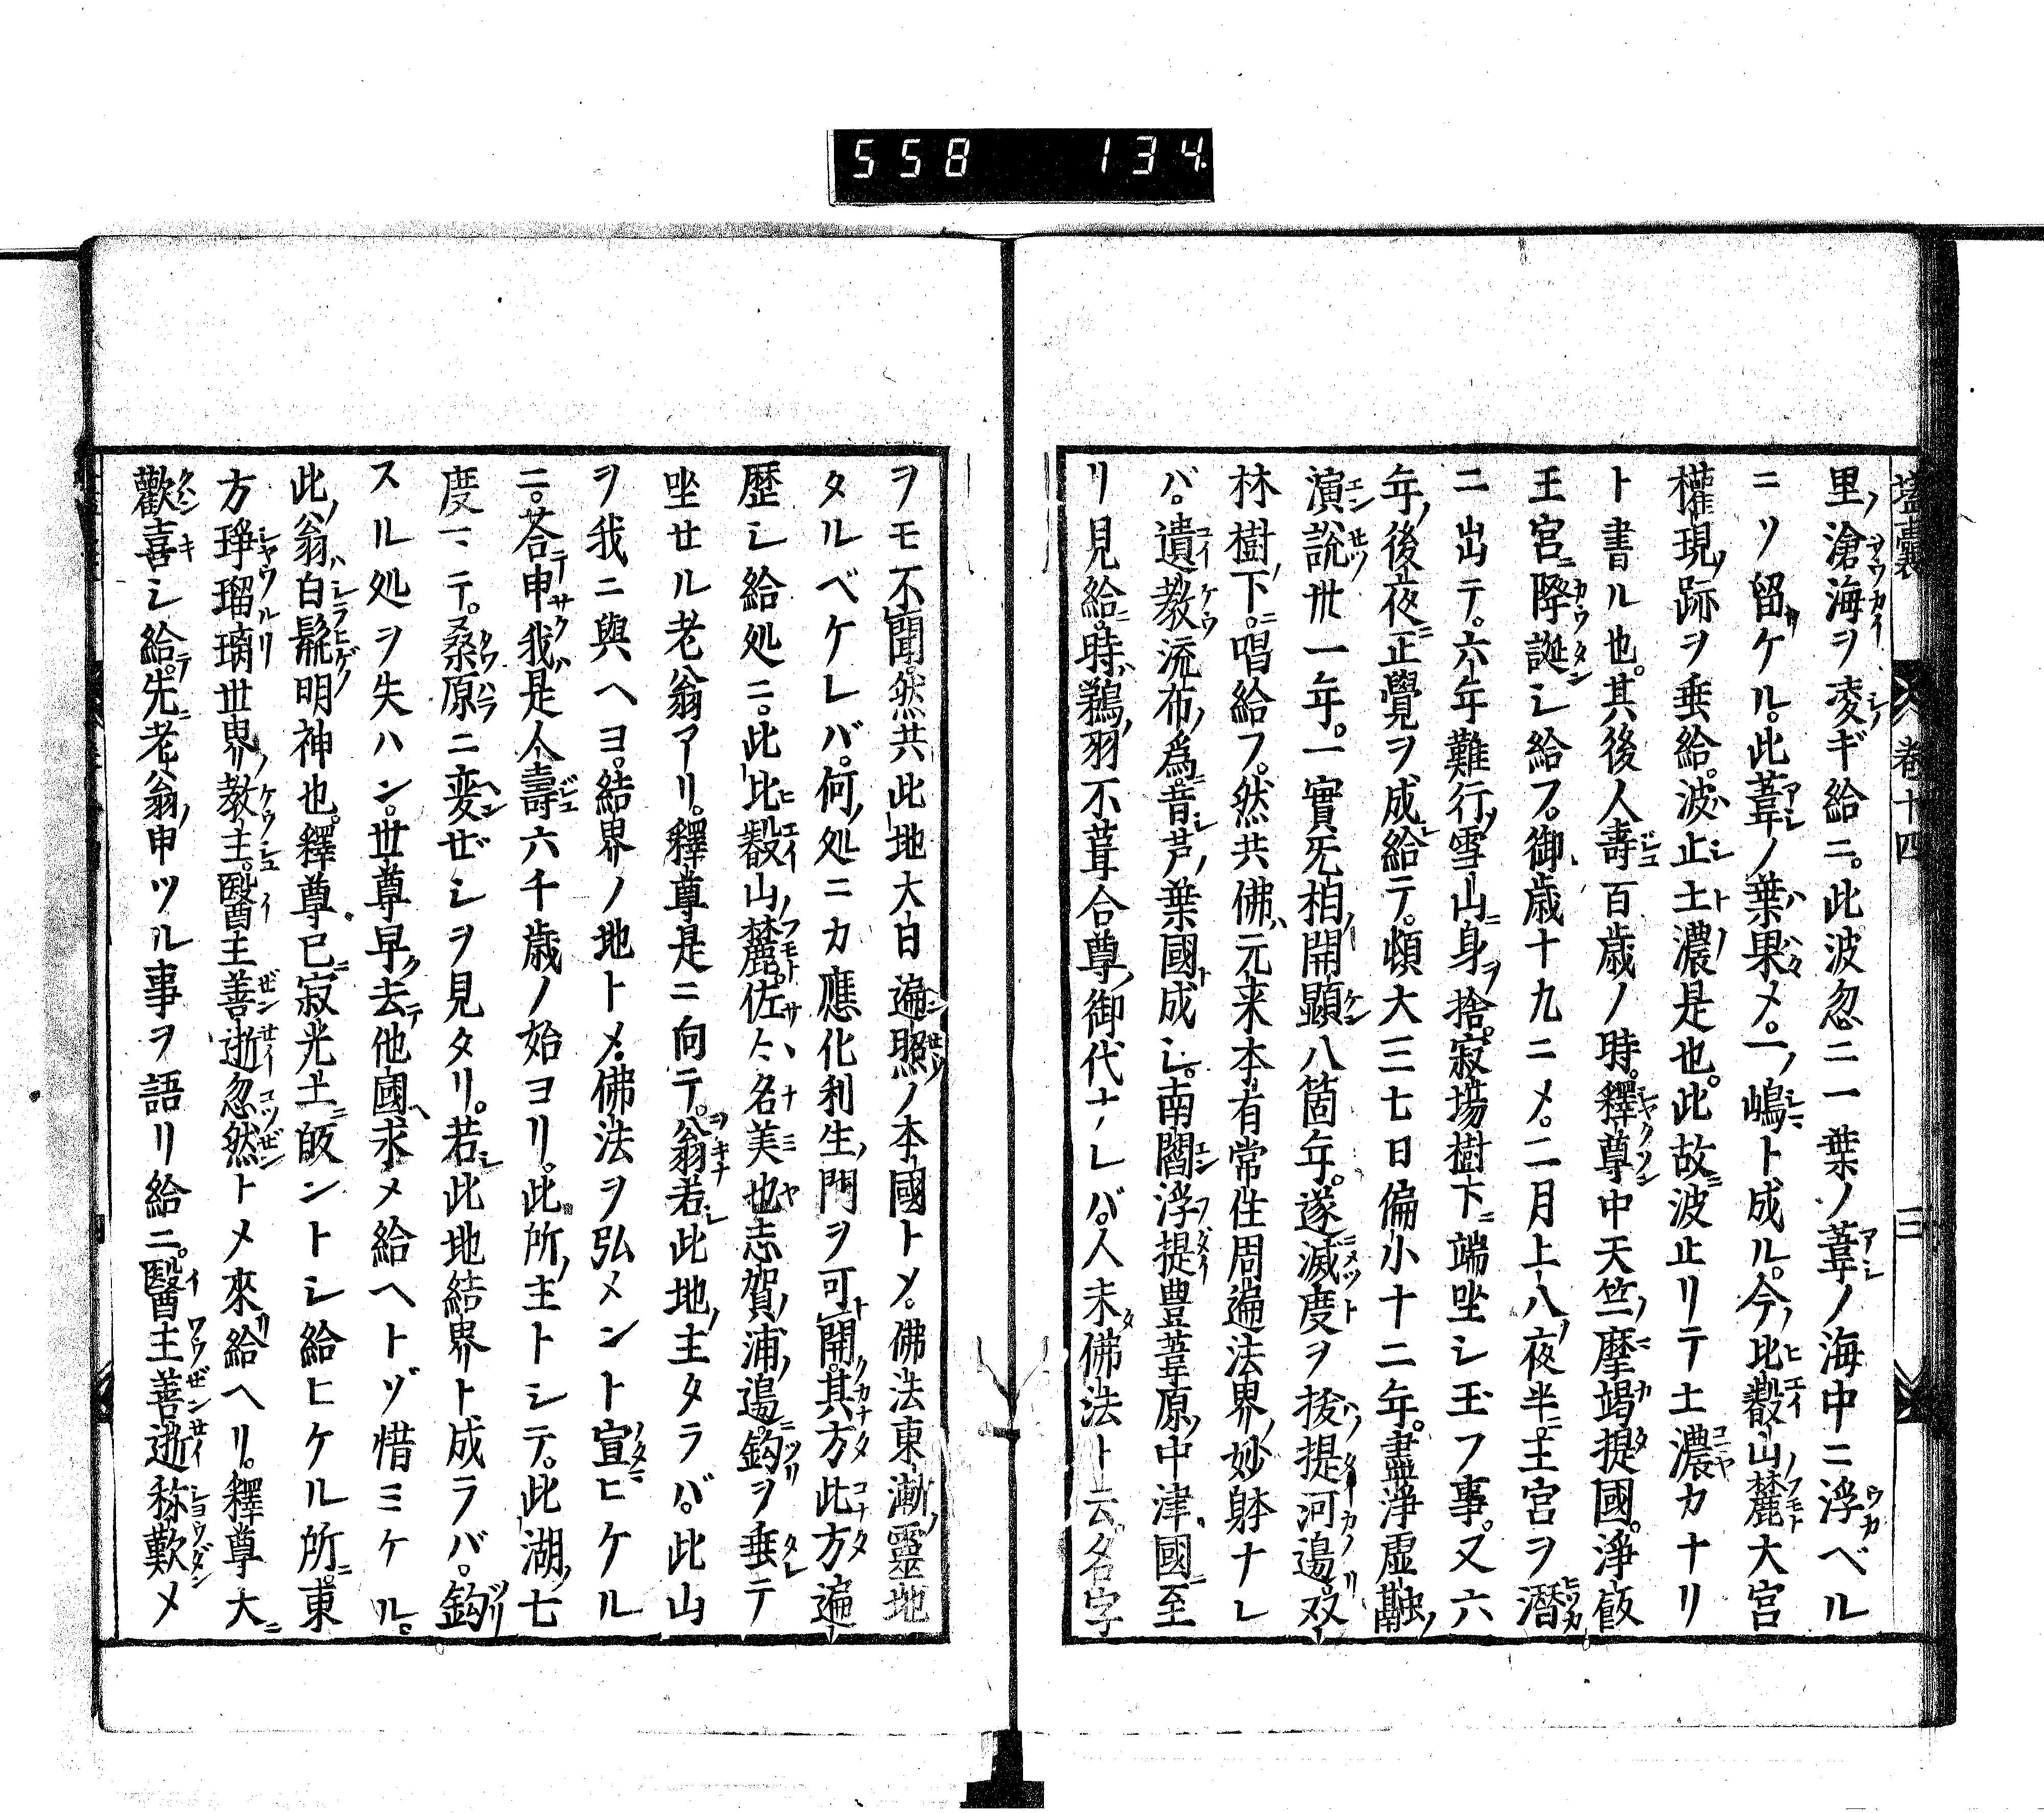 558 134
壒囊 卷十四 三
里ノ滄海ヲ凌ギ給ニ。此波忽ニ一葉ノ葦ノ海中ニ浮ベル
ニソ留ケル。此葦ノ葉果メ。一ノ嶋ト成ル。今ノ比叡山麓大宮
權現ノ跡ヲ垂給。波止土濃是也。此故ニ波止リテ土濃カナリ
ト書ル也。其後人壽百歳ノ時。釋尊中天竺ノ摩竭提國。淨飯
王宮ニ降誕シ給フ。御歳十九ニメ。二月上八ノ夜半ニ。王宮ヲ潛
ニ出テ。六年難行ノ雪山ニ身ヲ捨。寂場樹下ニ端坐シ玉フ事。又六
年ノ後夜ニ正覺ヲ成給テ。頓大三七日偏小十二年。盡淨虚融ノ
演説卅一年。一實旡相ノ開顯八箇年。遂ニ滅度ヲ拔提河邉。双
林樹下ニ。唱給フ。然共佛ハ元来本有常住周遍法界ノ妙躰ナレ
バ。遺教流布ノ爲ニ。昔芦ノ葉國ト成シ。南閻浮提豊葦原ノ中津國ニ至
リ見給ニ。時ハ鵜ノ羽不葺合尊ノ御代ナレバ。人未佛法ト云名字
ヲモ不聞。然共此地大日遍照ノ本國トメ。佛法東漸ノ靈地
タルベケレバ。何ノ処ニカ應化利生ノ門ヲ可開。其方此方遍
歴シ給処ニ。此比叡山ノ麓。佐々名美也志賀ノ浦ノ邉ニ。鈎ヲ垂テ
坐せル老翁アリ。釋尊是ニ向テ。翁若此地ノ主タラバ。此山
ヲ我ニ與ヘヨ。結界ノ地トメ。佛法ヲ弘メント宣ヒケル
ニ。荅テ申サク我ハ是人壽六千歳ノ始ヨリ。此所ノ主トシテ。此湖ノ七
度マテ。桑原ニ変ぜシヲ見タリ。若此地結界ト成ラバ。鈎
スル処ヲ失ハン。世尊早ク去テ他國ヘ求メ給ヘトゾ惜ミケル。
此ノ翁ハ白鬚明神也。釋尊已ニ寂光土ニ皈ントシ給ヒケル所ニ。東
方琤瑠璃世界ノ教主。醫王善逝忽然トメ來リ給ヘリ。釋尊大ニ
歡喜シ給テ。先ニ老翁ノ申ツル事ヲ語リ給ニ。醫王善逝称歎メ